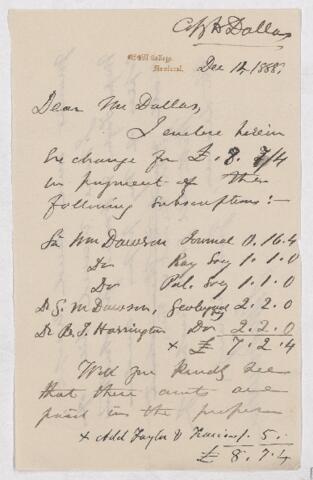 Dallas
McGill College,
Montreal.
Dec 12, 1888.
Dear Mr Dallas,
I enclose herein
Exchange for £.8.7/4
in payment of the
following subscriptions:-
Sir Wm Dawson Journal 0.16.4
Do Ray Socy 1.1.0
Do Pal. Socy 1.1.0
Dr G. M Dawson, Geological Socy 2.2.0
Dr B. J. Harrington Do 2.2.0
x £ 7.2.4
Will you kindly see
that these amts are
paid in the proper
x Add Taylor & Francis 1.5.-
£ 8.7.4